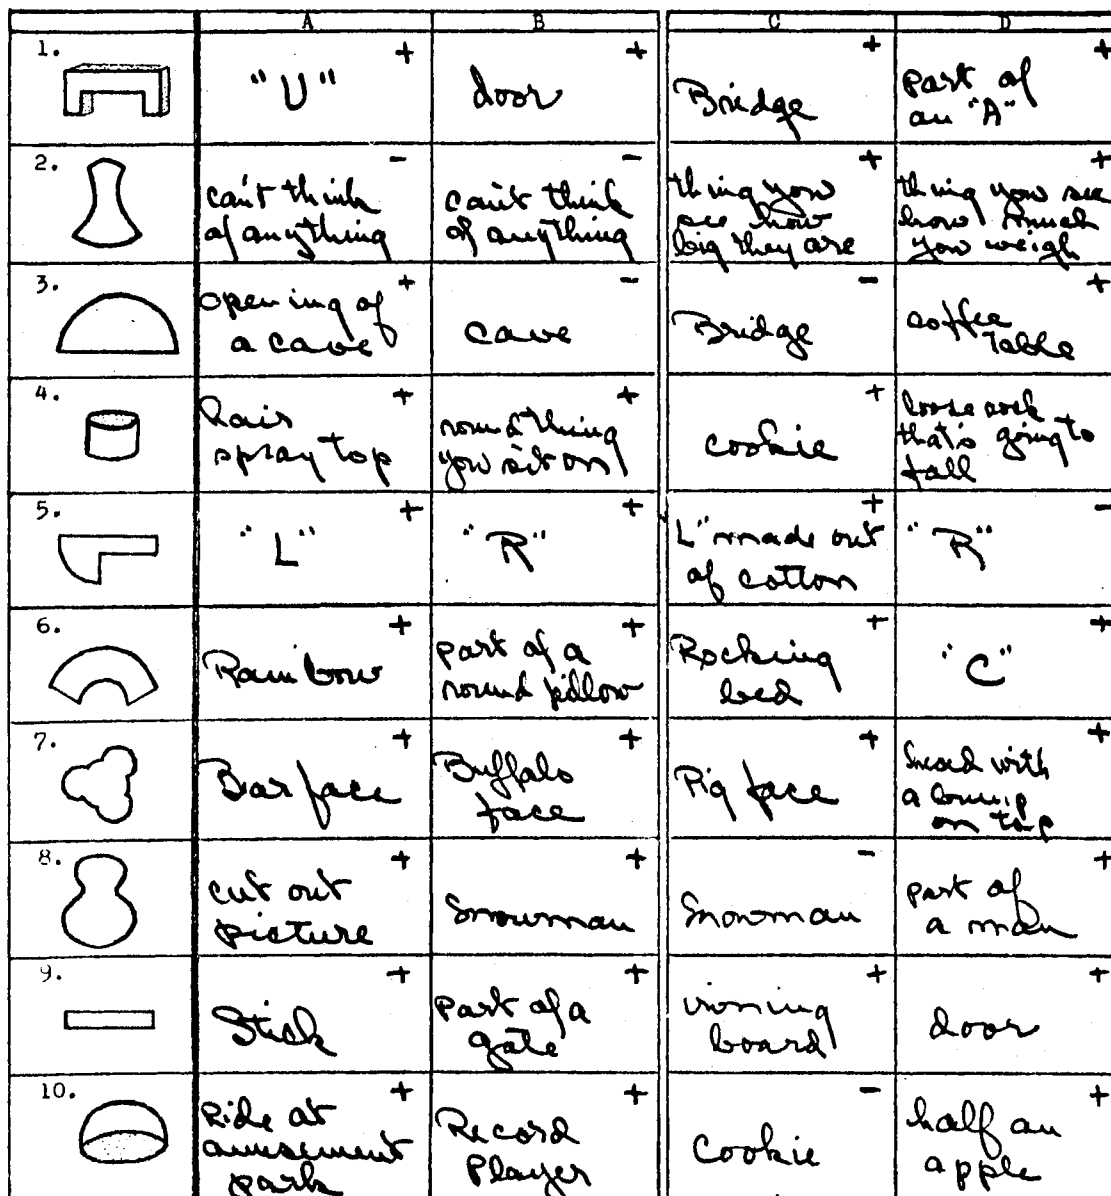 A B C D
1.
+
"U"
+
door
+
Bridge
+
part of
an "A"
2.
-
can't think
of anything
-
can't think
of anything
+
thing you
see how
big they are
+
thing you see
how much
you weigh
3.
+
opening of
a cave
-
cave
-
Bridge
+
coffee
table
4.
+
hair
spray top
+
round thing
you sit on
+
cookie
+
loose
that's going to
fall
5.
+
"L"
+
"R"
+
L" made out
of cotton
-
"R"
6.
+
Rainbow
+
part of a
round pillow
+
Rocking
bed
+
"C"
7.
+
Bear face
+
Buffalo
face
+
Pig face
+
with
a bump
on top
8.
+
cut out
picture
+
Snowman
-
Snowman
+
part of
a man
9.
+
Stick
+
part of a
gate
+
ironing
board
+
door
10.
+
Ride at
amusement
park
+
Record
Player
-
cookie
+
half an
apple